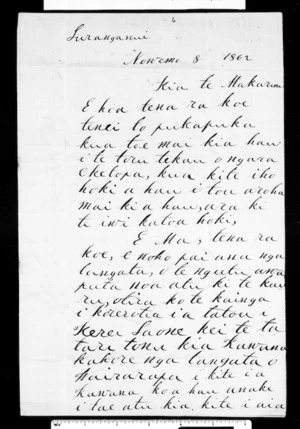 Turanganui
Nowema 8 1862
Kia te Makarini
E hoa tena ra koe
tenei to pukapuka
kua tae mai kia hau
i te toru tekau o ngara
Oketopa, kua kite iho
hoki a hau i tou aroha
mai ki a hau, ara ki
te iwi katoa hoki,
E Ma, tena ra
koe, e noho pai ana nga
tangata, o te ngutu awa
puta noa atu ki te kau
ru, otira ko te kainga
i korerotia i a tatou i
Kerei Taone kei te ta
tari tonu kia Kawana
kahore nga tangata o
Wairarapa i kite i a
Kawana ko a hau anake
i tae atu kia kite i aia